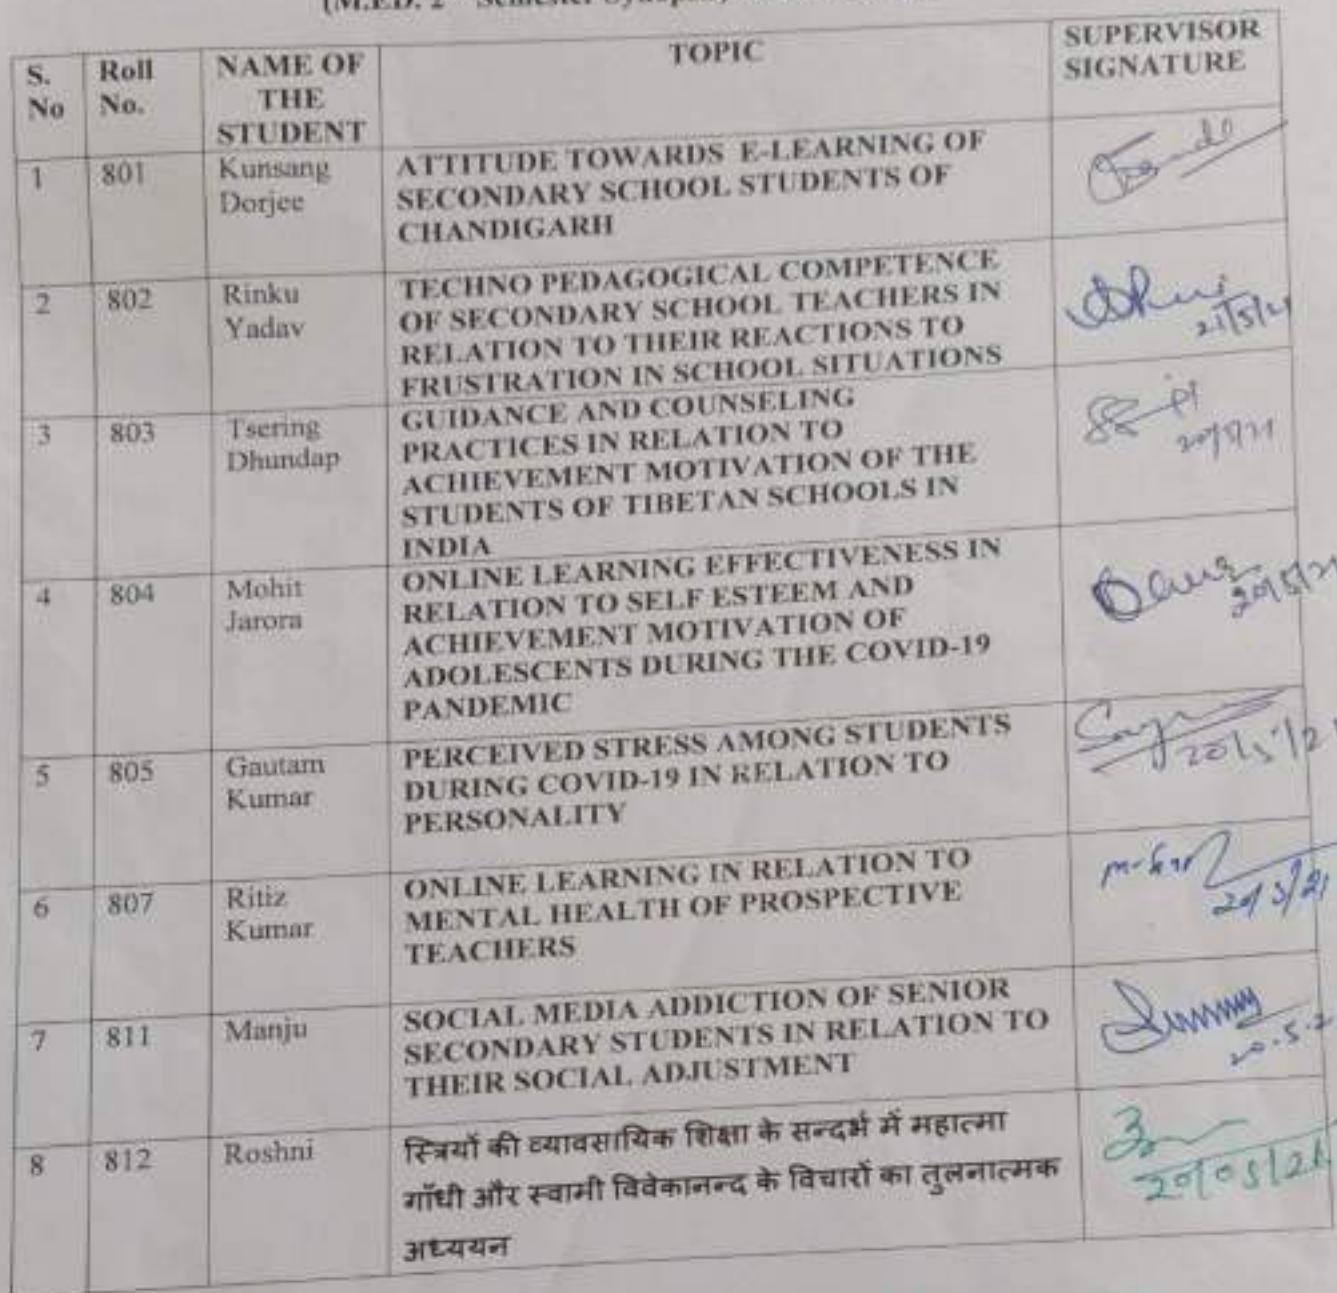 S. No
Roll No.
NAME OF THE STUDENT
TOPIC
SUPERVISOR SIGNATURE
1
801
Kunsang
Dorjee
ATTITUDE TOWARDS E-LEARNING OF
SECONDARY SCHOOL STUDENTS OF
CHANDIGARH
2
802
Rinku
Yadav
TECHNO PEDAGOGICAL COMPETENCE
OF SECONDARY SCHOOL TEACHERS IN
RELATION TO THEIR REACTIONS TO
FRUSTRATION IN SCHOOL SITUATIONS
21/5/21
3
803
Tsering
Dhundap
GUIDANCE AND COUNSELING
PRACTICES IN RELATION TO
ACHIEVEMENT MOTIVATION OF THE
STUDENTS OF TIBETAN SCHOOLS IN
INDIA
20/5/21
4
804
Mohit
Jarora
ONLINE LEARNING EFFECTIVENESS IN
RELATION TO SELF ESTEEM AND
ACHIEVEMENT MOTIVATION OF
ADOLESCENTS DURING THE COVID-19
PANDEMIC
20/5/21
5
805
Gautam
Kumar
PERCEIVED STRESS AMONG STUDENTS
DURING COVID-19 IN RELATION TO
PERSONALITY
20/5/21
6
807
Ritiz
Kumar
ONLINE LEARNING IN RELATION TO
MENTAL HEALTH OF PROSPECTIVE
TEACHERS
20/5/21
7
811
Manju
SOCIAL MEDIA ADDICTION OF SENIOR
SECONDARY STUDENTS IN RELATION TO
THEIR SOCIAL ADJUSTMENT
20.5.2
8
812
Roshni
स्त्रियों की व्यावसायिक शिक्षा के सन्दर्भ में महात्मा
गाँधी और स्वामी विवेकानन्द के विचारों का तुलनात्मक
अध्ययन
20/05/21